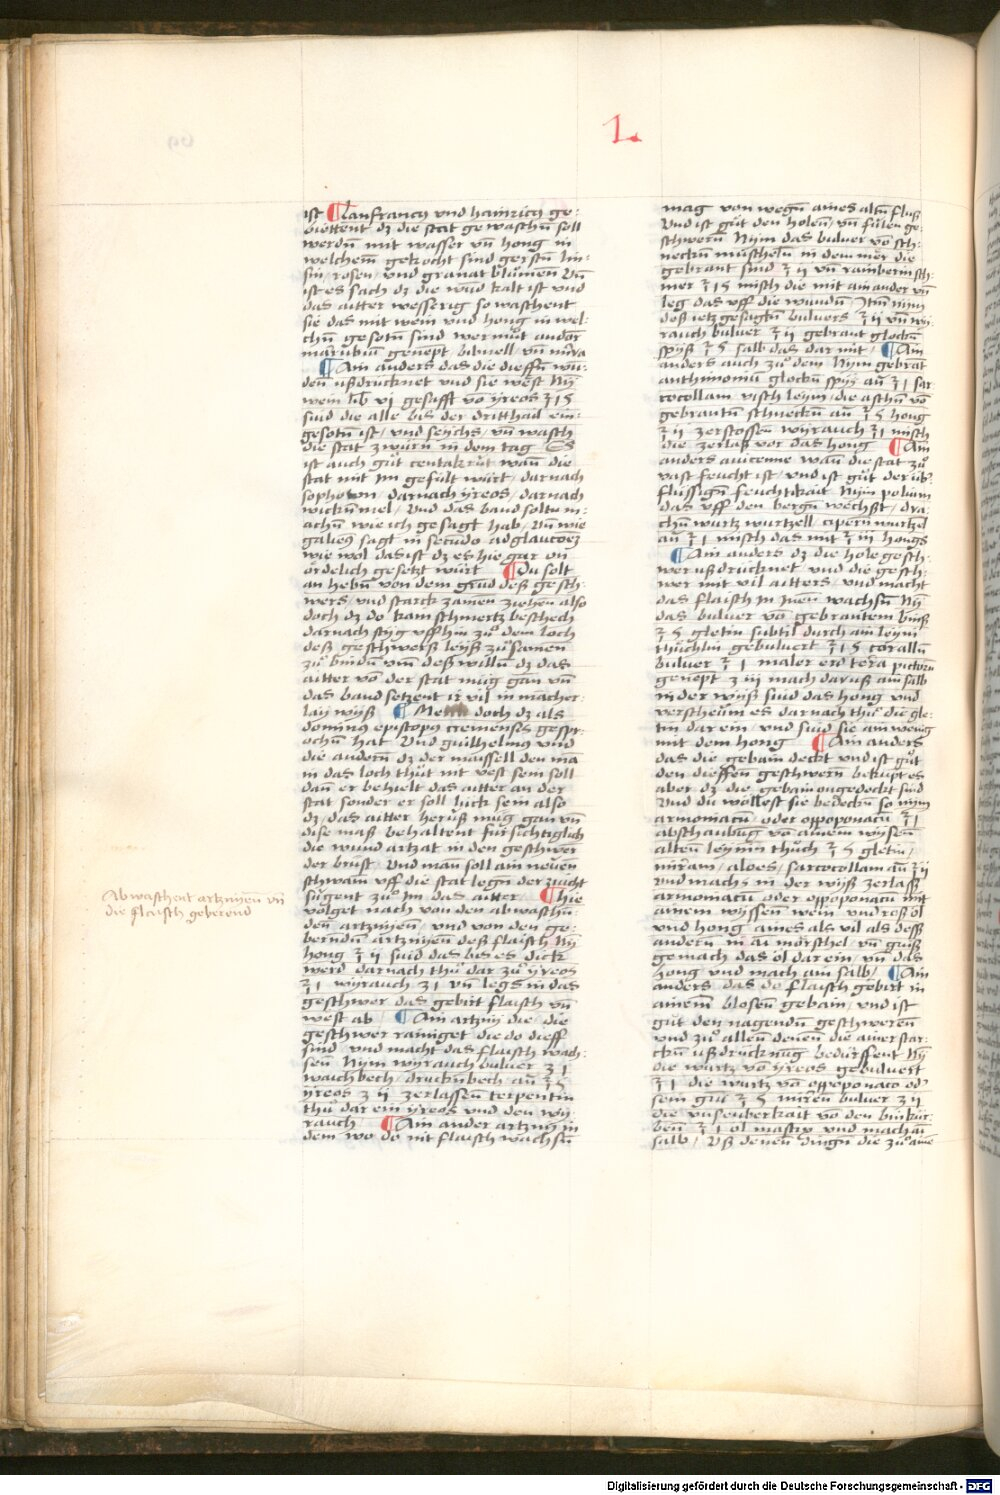 L
ist ¶ Lanfrancus vnd hainricus ge-
biettent dz die stat gewaschen soll
werdn mit wasser vn hong in
welchem gekocht sind gersten lin-
sin, rosen, vnd granat blůmen Vn
ist es sach dz die wund kalt ist vnd
das aitter wesserig so waschent
sie das mit wein vnd hong in wel-
chen gesotn sind wermůt andorn
marubium genempt,
¶ Ain anders das die dieffn wun-
den ußdrucknet vnd sie west Nym
wein lib vj gesafft vo yreos ℥ 15
sud die alle bis der dritthail ein-
gesotn ist, vnd seichs, vn wasch
die stat zwurn in dem tag Es
ist auch gůt centakrut wan die
stat mit im gefult wurt, darnach
darnach yreos, darnach
wicken mel, Vnd das band soltu m-
achen wie ich gesagt hab, Vn wie
galieus sagt in secundo adglauconem
wie wol das ist dz es hie gar vn
ordelich gesetzt wurt ¶ Du solt
an hebn von dem grund deß gesch-
wers, vnd starck zamen ziehen also
doch dz do kain schmertz beschech
darnach styg vff hin zů dem loch
deß geschwerß leyß zůsamen
zů binden vm deß willen dz das
aitter vo der stat mug gan vn
das band setzent ir vil in macher-
lay wyß ¶ doch dz als
dominus episcopus cremensis gespr-
ochen hat Vnd guilhelmus vnd
die andern dz der maissell den man
in das loch thůt nit vest sein soll
dan er behielt das aitter an der
stat sonder er soll luck sein also
dz, das aitter heruß mug gan vn
dise maß behaltent fursichtiglich
die wund artzat in den geschwer
der brust, Vnd man soll ain neuen
schwam vff die stat legen der
sugent zů im das aitter, ¶ hie
volget nach von den abwaschen-
den artznyen, vnd von den ge-
berndn artznyen deß flaisch Nym
hong ℥ ij suid das bis es dick
werd darnach thů dar zů yreos
℥ 1 wyrauch ʒ 1 vn legs in das
geschwer das gebirt flaisch vn
west ab, ¶ Ain artzny die, die
geschwer rainiget die do dieff
sind, vnd macht das flaisch wach-
sen Nym wyrauch buluer ʒ 1
yreos ʒ ij zerlassen terpentin
thů dar ein yreos vnd den wy-
rauch ¶ Ain ander artzny in
dem wo do nit flaisch wachsen
mag von wegen aines altn fluß
Vnd ist gůt den holen, vn fulen ge-
schwern Nym das buluer vo sch-
necken muscheln in dem mer die
gebrant sind ℥ ij
mer ℥ 15 misch die mit ain ander vn
leg das vff die wunden, Item nym
deß ietz gesagten buluers ℥ ij vn wy-
rauch buluer ℥ ij gebrant glocken
spyß ℥ 5 salb das dar mit, ¶ Ain
anders auch zů dem Nym gebrant
anthimonium glocken spyß an ℥ 1 sar-
cocollam visch leym, die aschn vo
gebranten schnecken an ℥ 5 hong
℥ ij zerstossen wyrauch ℥ 1 misch
die zerlaß vor das hong ¶ Ain
anders auicenne wan die stat zů
vast feucht ist, vnd ist gůt der vber
flussigen feuchtikait Nym polium
das vff den bergen wechßt, dra-
chen wurtz wurtzell, capern wurtzel
an ℥ 1 misch das mit ℥ iij hongs
¶ Ain anders dz die hole gesch-
wer ußdrucknet vnd die gesch-
wer mit vil aitters, vnd macht
das flaisch in inen wachsen Nym
das buluer von gebrantem
℥ 5 gletin subtil durch ain leynin
thuchlin gebuluert ℥ 15 corallen
buluer ℥ 1 maler erd terra pictorum
genempt ʒ iij mach daruß ain salb
in der wyß suid das hong vnd
verscheum es darnach thů die gle-
tin dar ein, vnd suid sie ain wenig
mit dem hong ¶ Ain anders
das die gebain deckt vnd ist gůt
den dieffen geschwern bekupt es
aber dz die gebain ongedeckt sind
Vnd du wollest sie bedecken so nym
armoniacum, oder oppoponacum, ℥ 1
abschaubung vo ainem wyssen
alten leynin thůch ℥ 5 gletin,
mirram, aloes, sarcocollam an ℥ ij
vnd machs in der wyß zerlaß
armoniacum oder oppoponacum mit
ainem wyssen wein vnd roß ol
vnd hong aines als vil als deß
andern in ain morschel vn guß
gemach das ol dar ein, vn das
hong vnd mach ain salb, ¶ Ain
anders das do flaisch gebirt in
ainem blosen gebain, vnd ist
gůt den nagenden geschweren
vnd zů allen denen die ainer star-
cken ußdrucknug bedurffent Nym
die wurtz vo yreos gebuluert
℥ 1 die wurtz von oppoponaco oder
sein grum ℥ 5 mirren buluer ʒ ij
ben ℥ 1 ol mastix vnd mach ain
salb, Vß denen dingen die zů aine
Abwaschent artznyen vn
die flaisch geberend
Digitalisierung gefördert durch die Deutsche Forschungsgemeinschaft - DFG